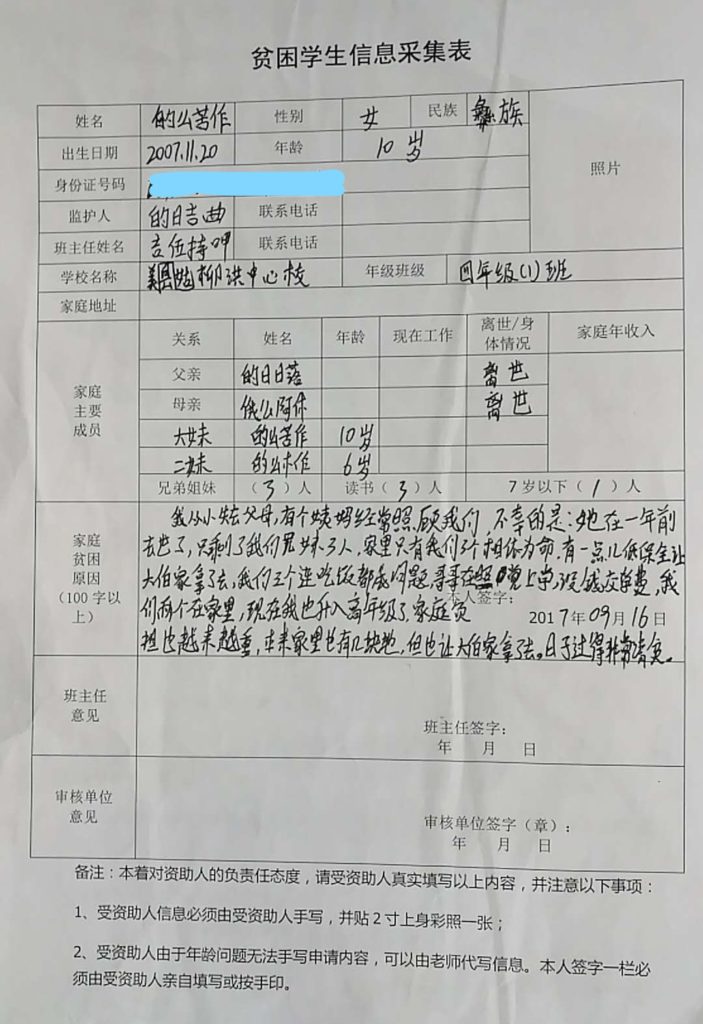 贫困学生信息采集表
姓名 的么苦作 性别 女 民族 彝族
出生日期 2007.11.20 年龄 10岁
照片
身份证号码
监护人 的日吉曲 联系电话
班主任姓名 吉伍持呷 联系电话
学校名称 美姑柳洪中心校 年级班级 四年级(1)班
家庭地址
家庭主要成员
关系 姓名 年龄 现在工作 离世/身体情况 家庭年收入
父亲 的日日落 离世
母亲 俄么阿休 离世
大妹 的么苦作 10岁
二妹 的么木作 6岁
兄弟姐妹 (3)人 读书(3)人 7岁以下(1)人
家庭贫困原因(100字以上)
我从小失去父母,有个姨妈经常照顾我们,不幸的是:她在一年前
去世了,只剩了我们兄妹3人,家里只有我们3个相依为命,有一点儿低保全让
大伯家拿了去,我们三个连吃饭都成问题,哥哥在上学,没钱交学费,我
们两个在家里,现在我也升入高年级了,家庭负
本人签字:
2017年09月16日
担也越来越重,本来家里也有几块地,但也让大伯家拿了去。日子过得非常贫。
班主任意见
班主任签字:
年 月 日
审核单位意见
审核单位签字(章):
年 月 日
备注:本着对资助人的负责任态度,请受资助人真实填写以上内容,并注意以下事项:
1、受资助人信息必须由受资助人手写,并贴2寸上身彩照一张;
2、受资助人由于年龄问题无法手写申请内容,可以由老师代写信息。本人签字一栏必
须由受资助人亲自填写或按手印。